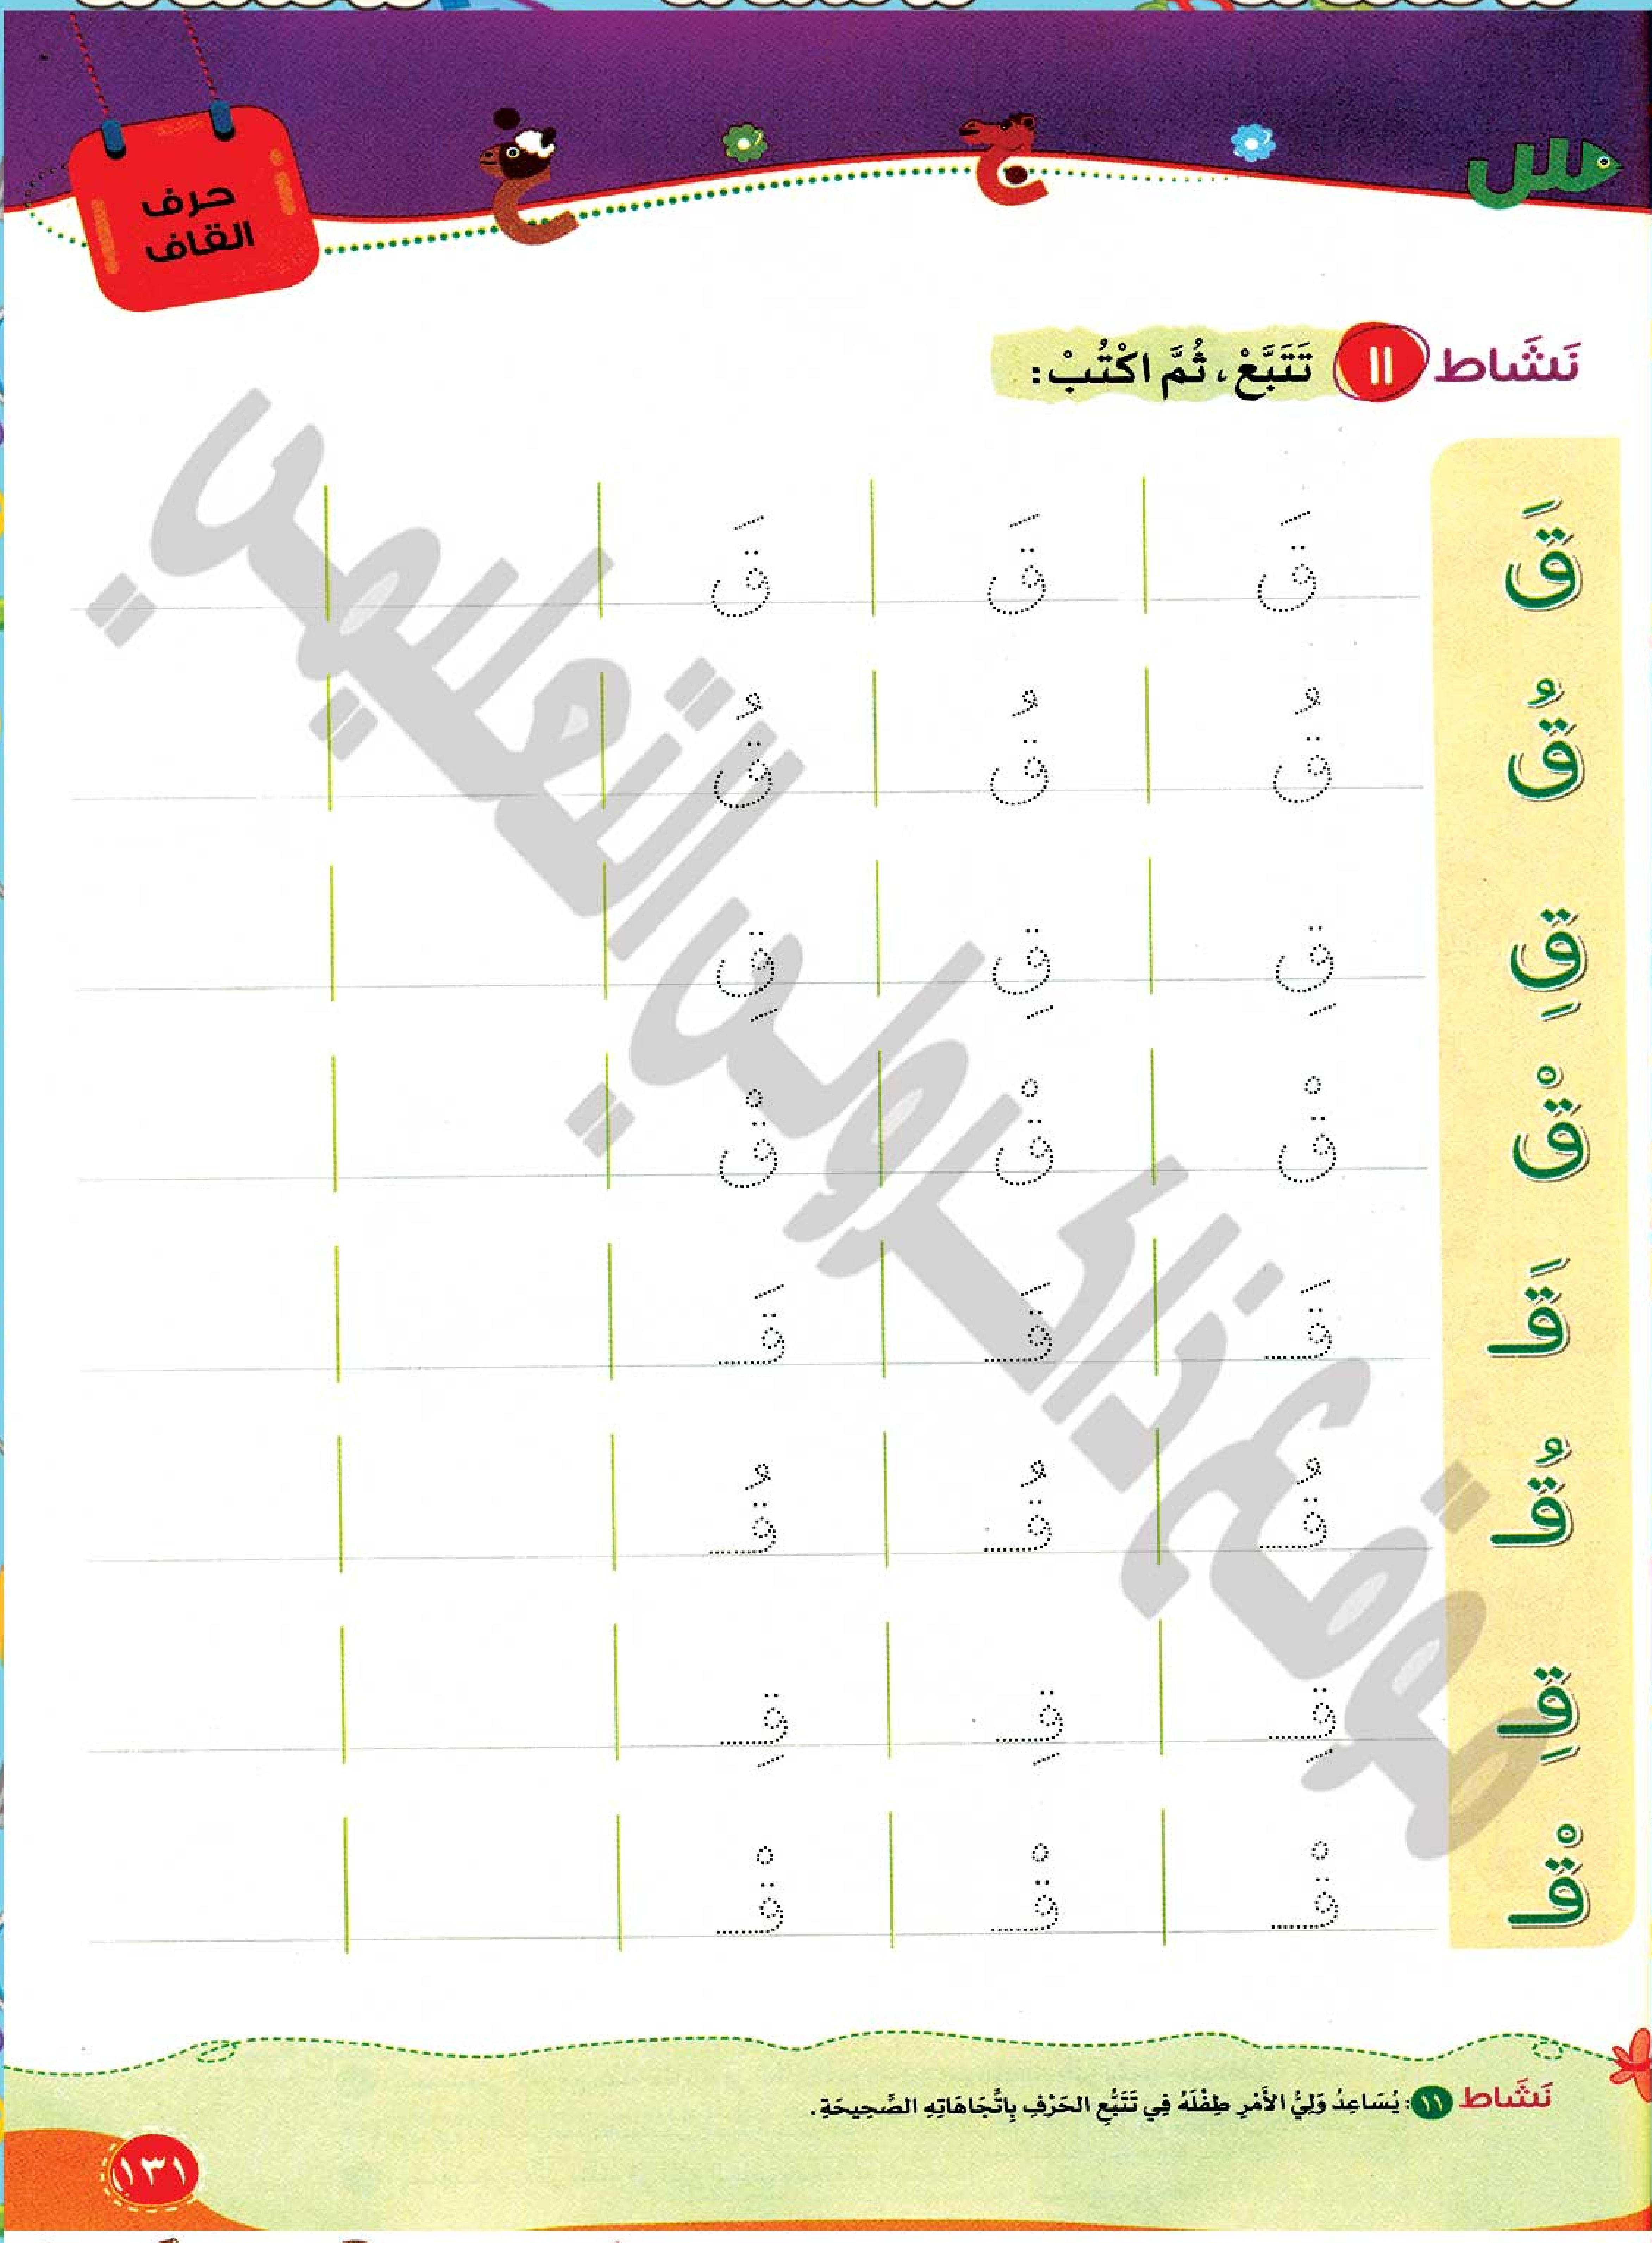 حرف
القاف
نَشَاط ١١ تَتَبَّعْ، ثُمَّ اكْتُبْ:
قَ قَ قَ قَ
قُ قُ قُ قُ
قِ قِ قِ قِ
قْ قْ قْ قْ
قَـ قَـ قَـ قَـ
قُـ قُـ قُـ قُـ
قِـ قِـ قِـ قِـ
قْـ قْـ قْـ قْـ
موقع ذاكرولي التعليمي
نَشَاط ١١: يُسَاعِدُ وَلِيُّ الأَمْرِ طِفْلَهُ فِي تَتَبُّعِ الحَرْفِ بِاتِّجَاهَاتِهِ الصَّحِيحَةِ.
١٣١